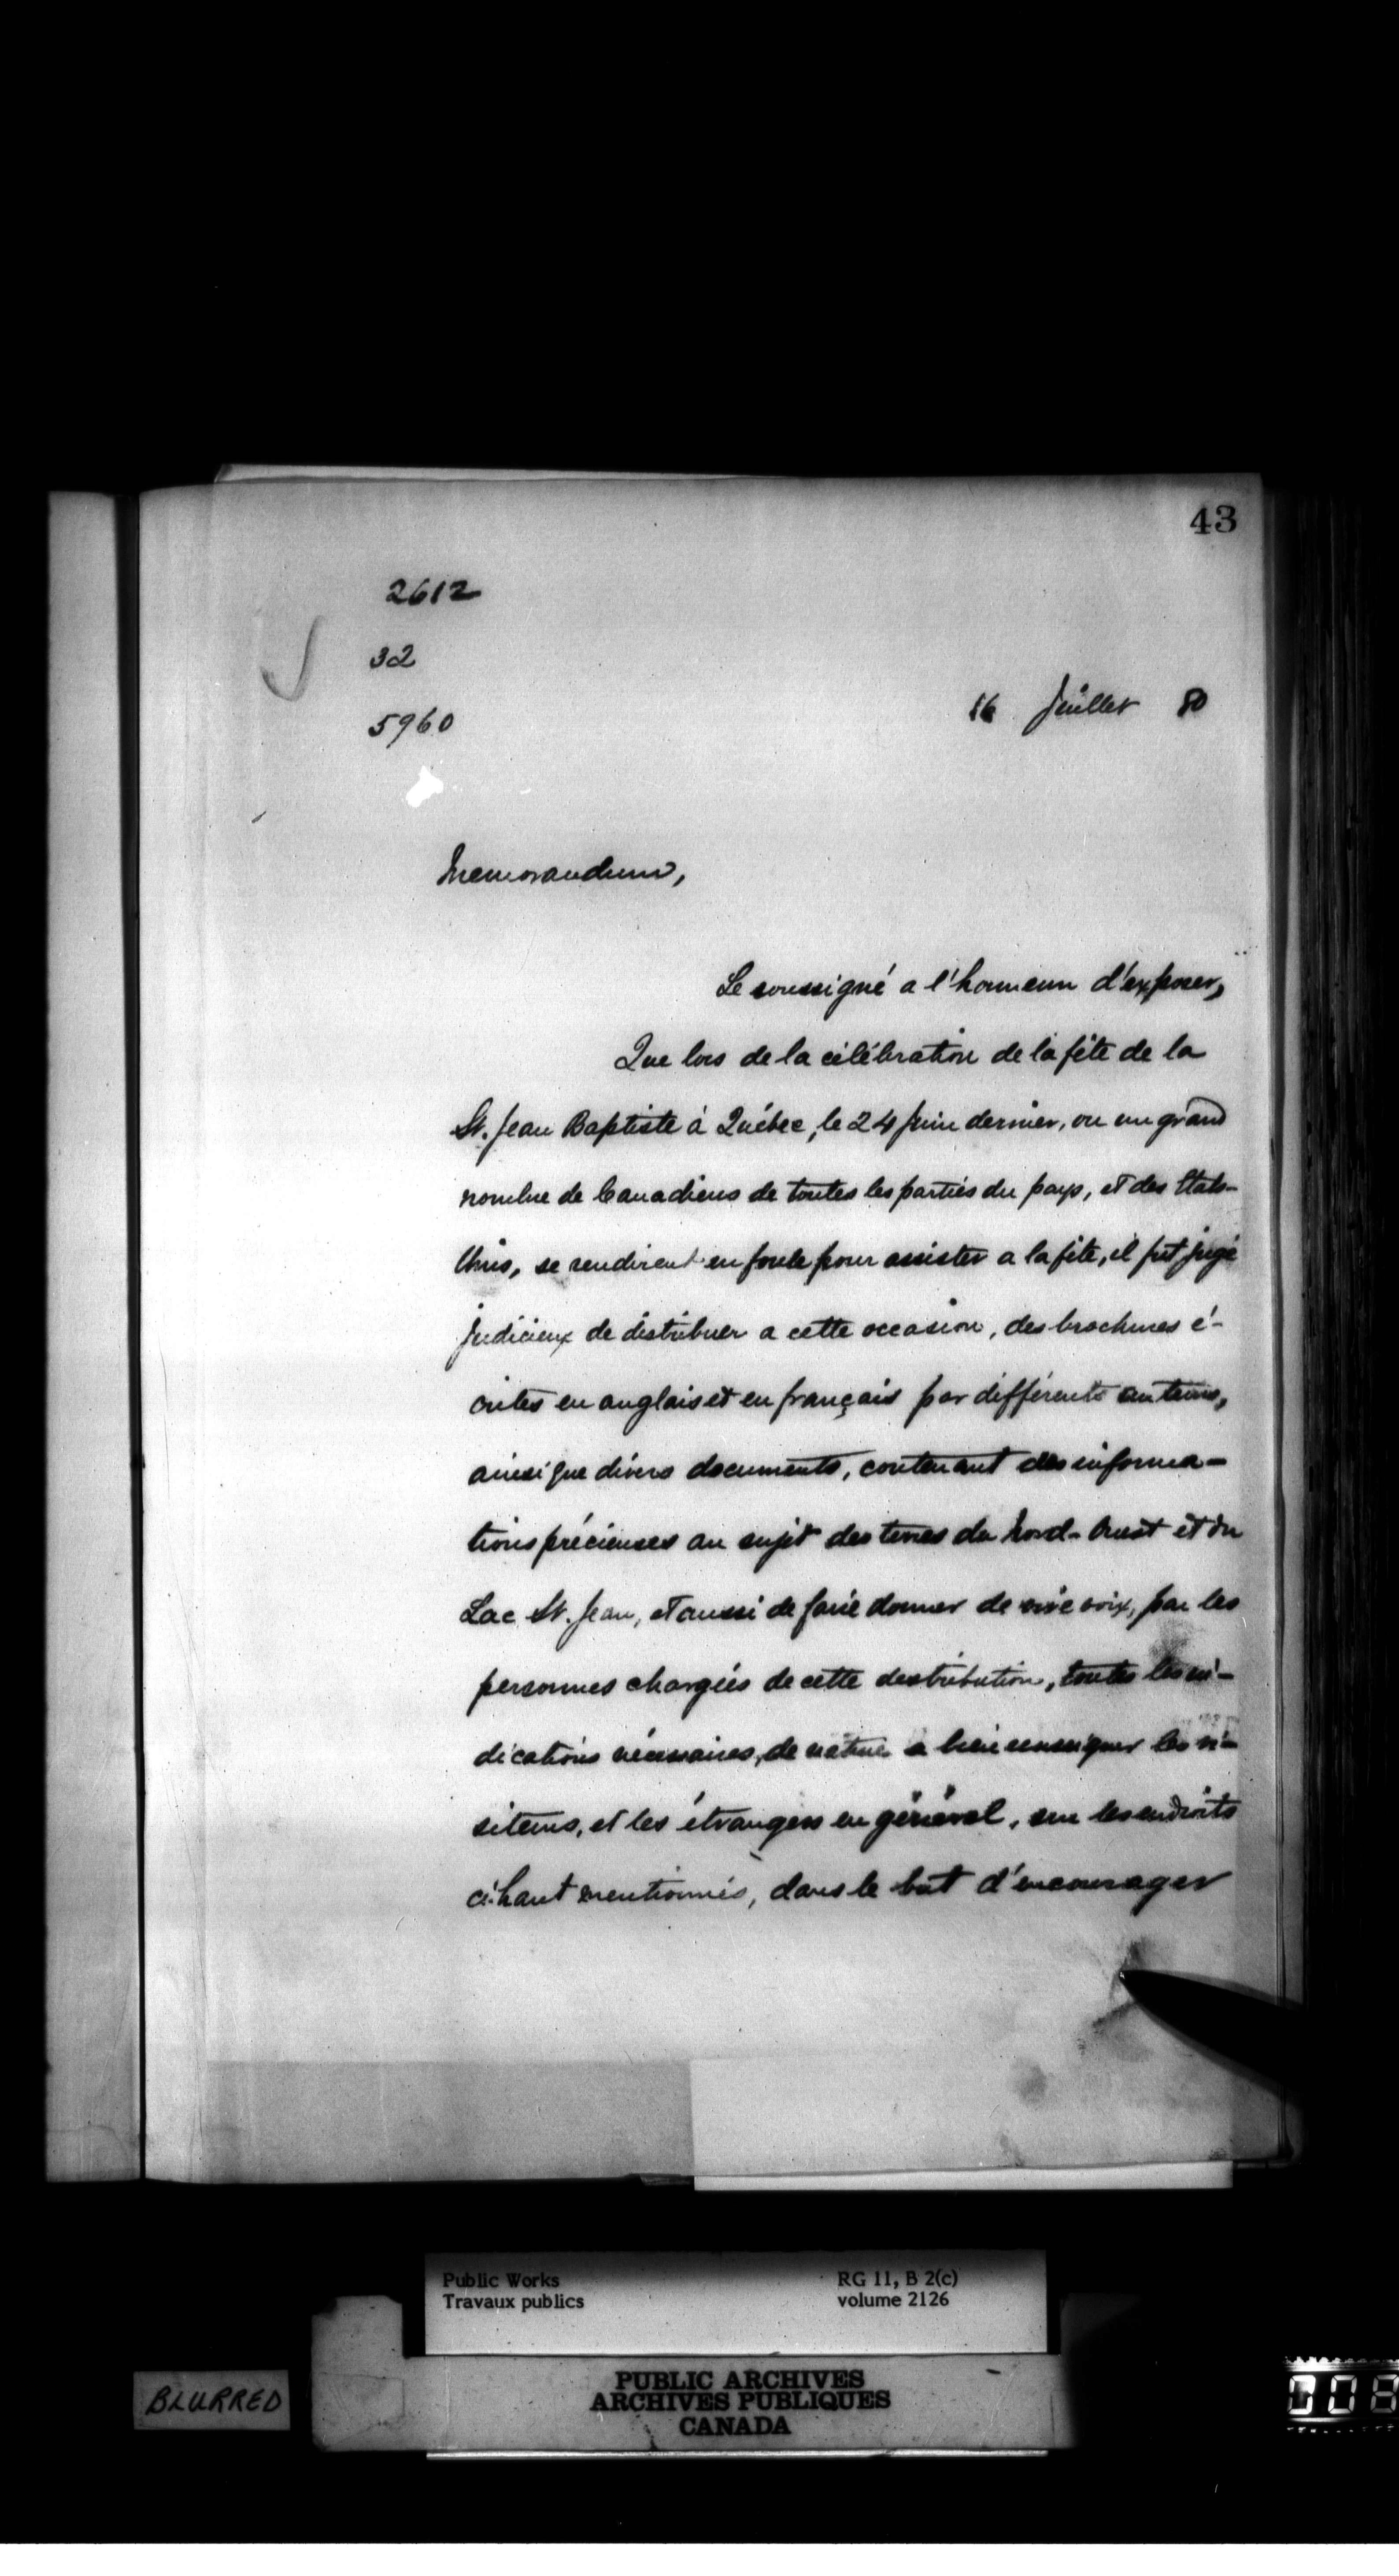 43
2612
32
5960
16 Juillet 80
Memorandum,
Le soussigné a l'honneur d'exposer,
Que lors de la célébration de la fête de la
St. Jean Baptiste à Québec, le 24 Juin dernier, ou un grand
nombre de Canadiens de toutes les parties du pays, et des Etats-
Unis, se rendirent en foule pour assister a la fête, il fut jugé
judicieux de distribuer a cette occasion, des brochures é-
crites en anglais et en français par différents auteurs,
ainsi que divers documents, contenant des informa-
tions précieuses au sujet des terres du Nord-Ouest et du
Lac St. Jean, et aussi de faire donner de vive voix, par les
personnes chargées de cette distribution, toutes les in-
dications nécessaires, de nature a bien renseigner les vi-
siteurs, et les étrangers en général, sur les endroits
ci-haut mentionnés, dans le but d'encourager
Public Works RG 11, B 2(c)
Travaux publics volume 2126
PUBLIC ARCHIVES
ARCHIVES PUBLIQUES
CANADA
BLURRED
008